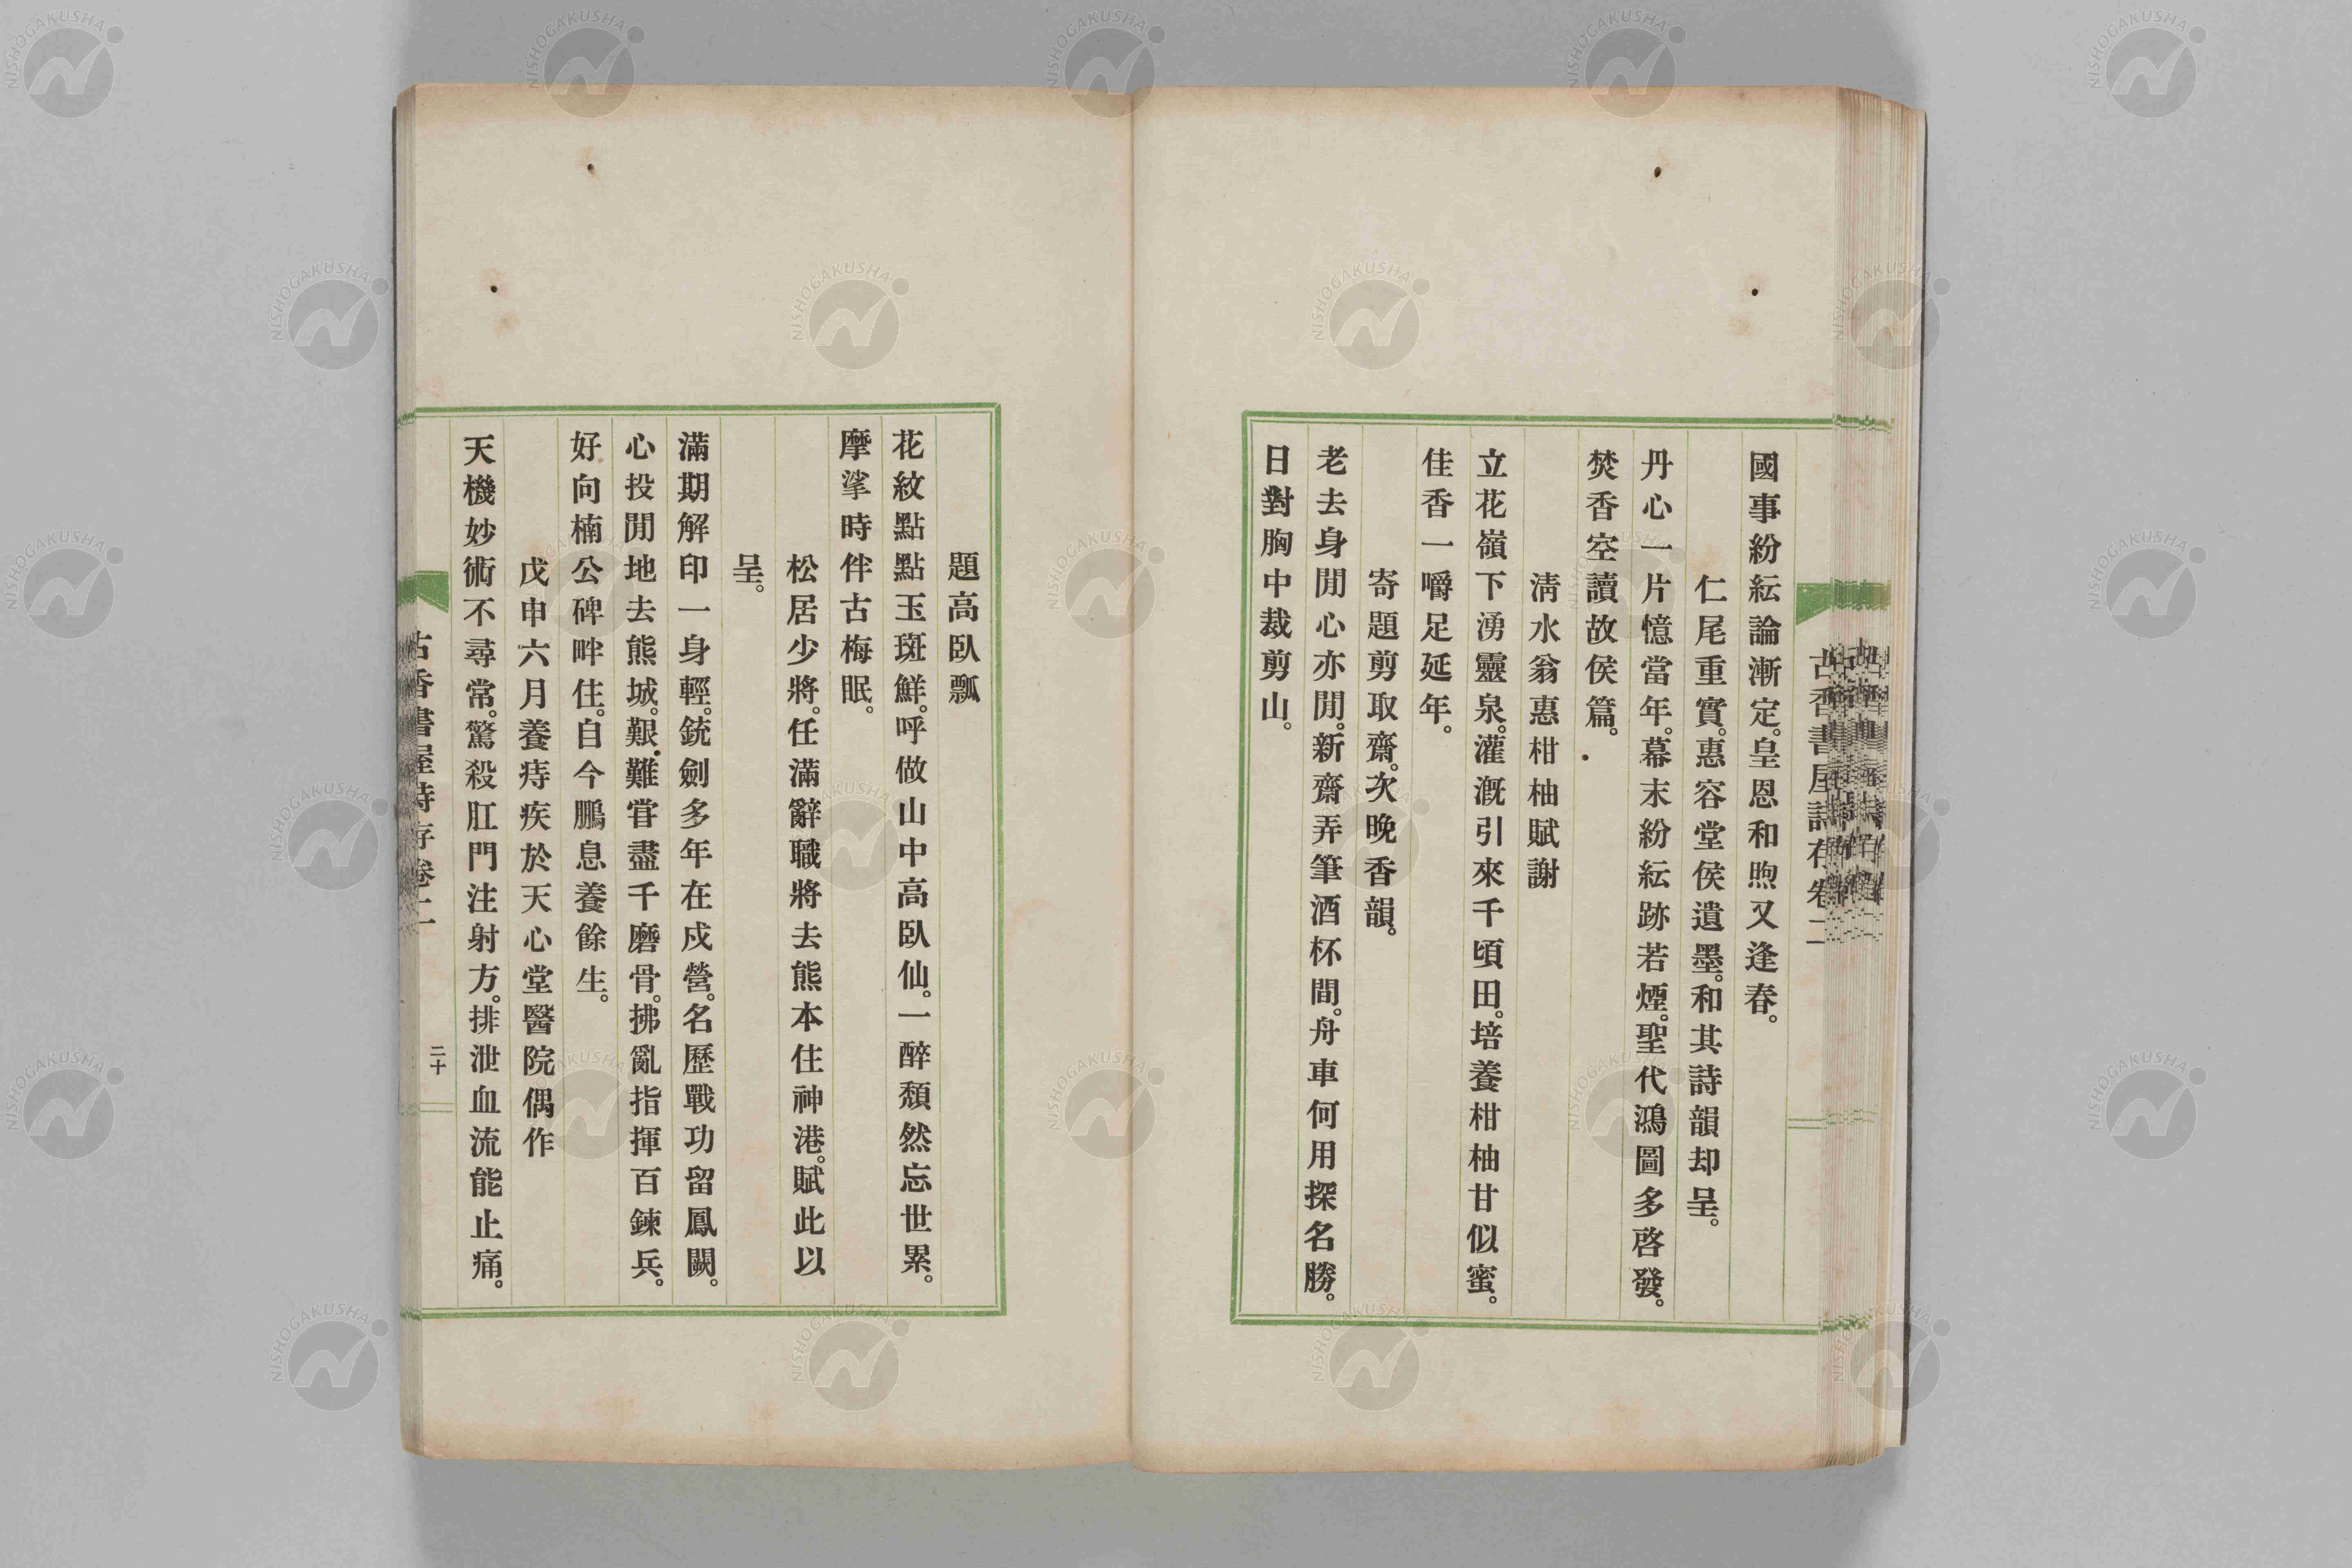 國事紛紜論漸定。皇恩和煦又逢春。
仁尾重實。惠容堂侯遺墨。和其詩韻却呈。
丹心一片憶當年。幕末紛紜跡若煙。聖代鴻圖多啓發。
焚香空讀故侯篇。
淸水翁惠柑柚賦謝
立花嶺下湧靈泉。灌漑引來千頃田。培養柑柚甘似蜜。
佳香一嚼足延年。
寄題剪取齋。次晩香韻。
老去身閒心亦閒。新齋弄筆酒杯間。舟車何用探名勝。
日對胸中裁剪山。
題高臥瓢
花紋點點玉斑鮮。呼做山中高臥仙。一醉頹然忘世累。
摩挲時伴古梅眠。
松居少將。任滿辭職將去熊本住神港。賦此以
呈。
滿期解印一身輕。銃劍多年在戍營。名歷戰功留鳳闕。
心投閒地去熊城。艱難甞盡千磨骨。拂亂指揮百鍊兵。
好向楠公碑畔住。自今鵬息養餘生。
戊申六月養痔疾於天心堂醫院偶作
天機妙術不尋常。驚殺肛門注射方。排泄血流能止痛。
古香書屋詩存卷二
二十
NISHOGAKUSHA